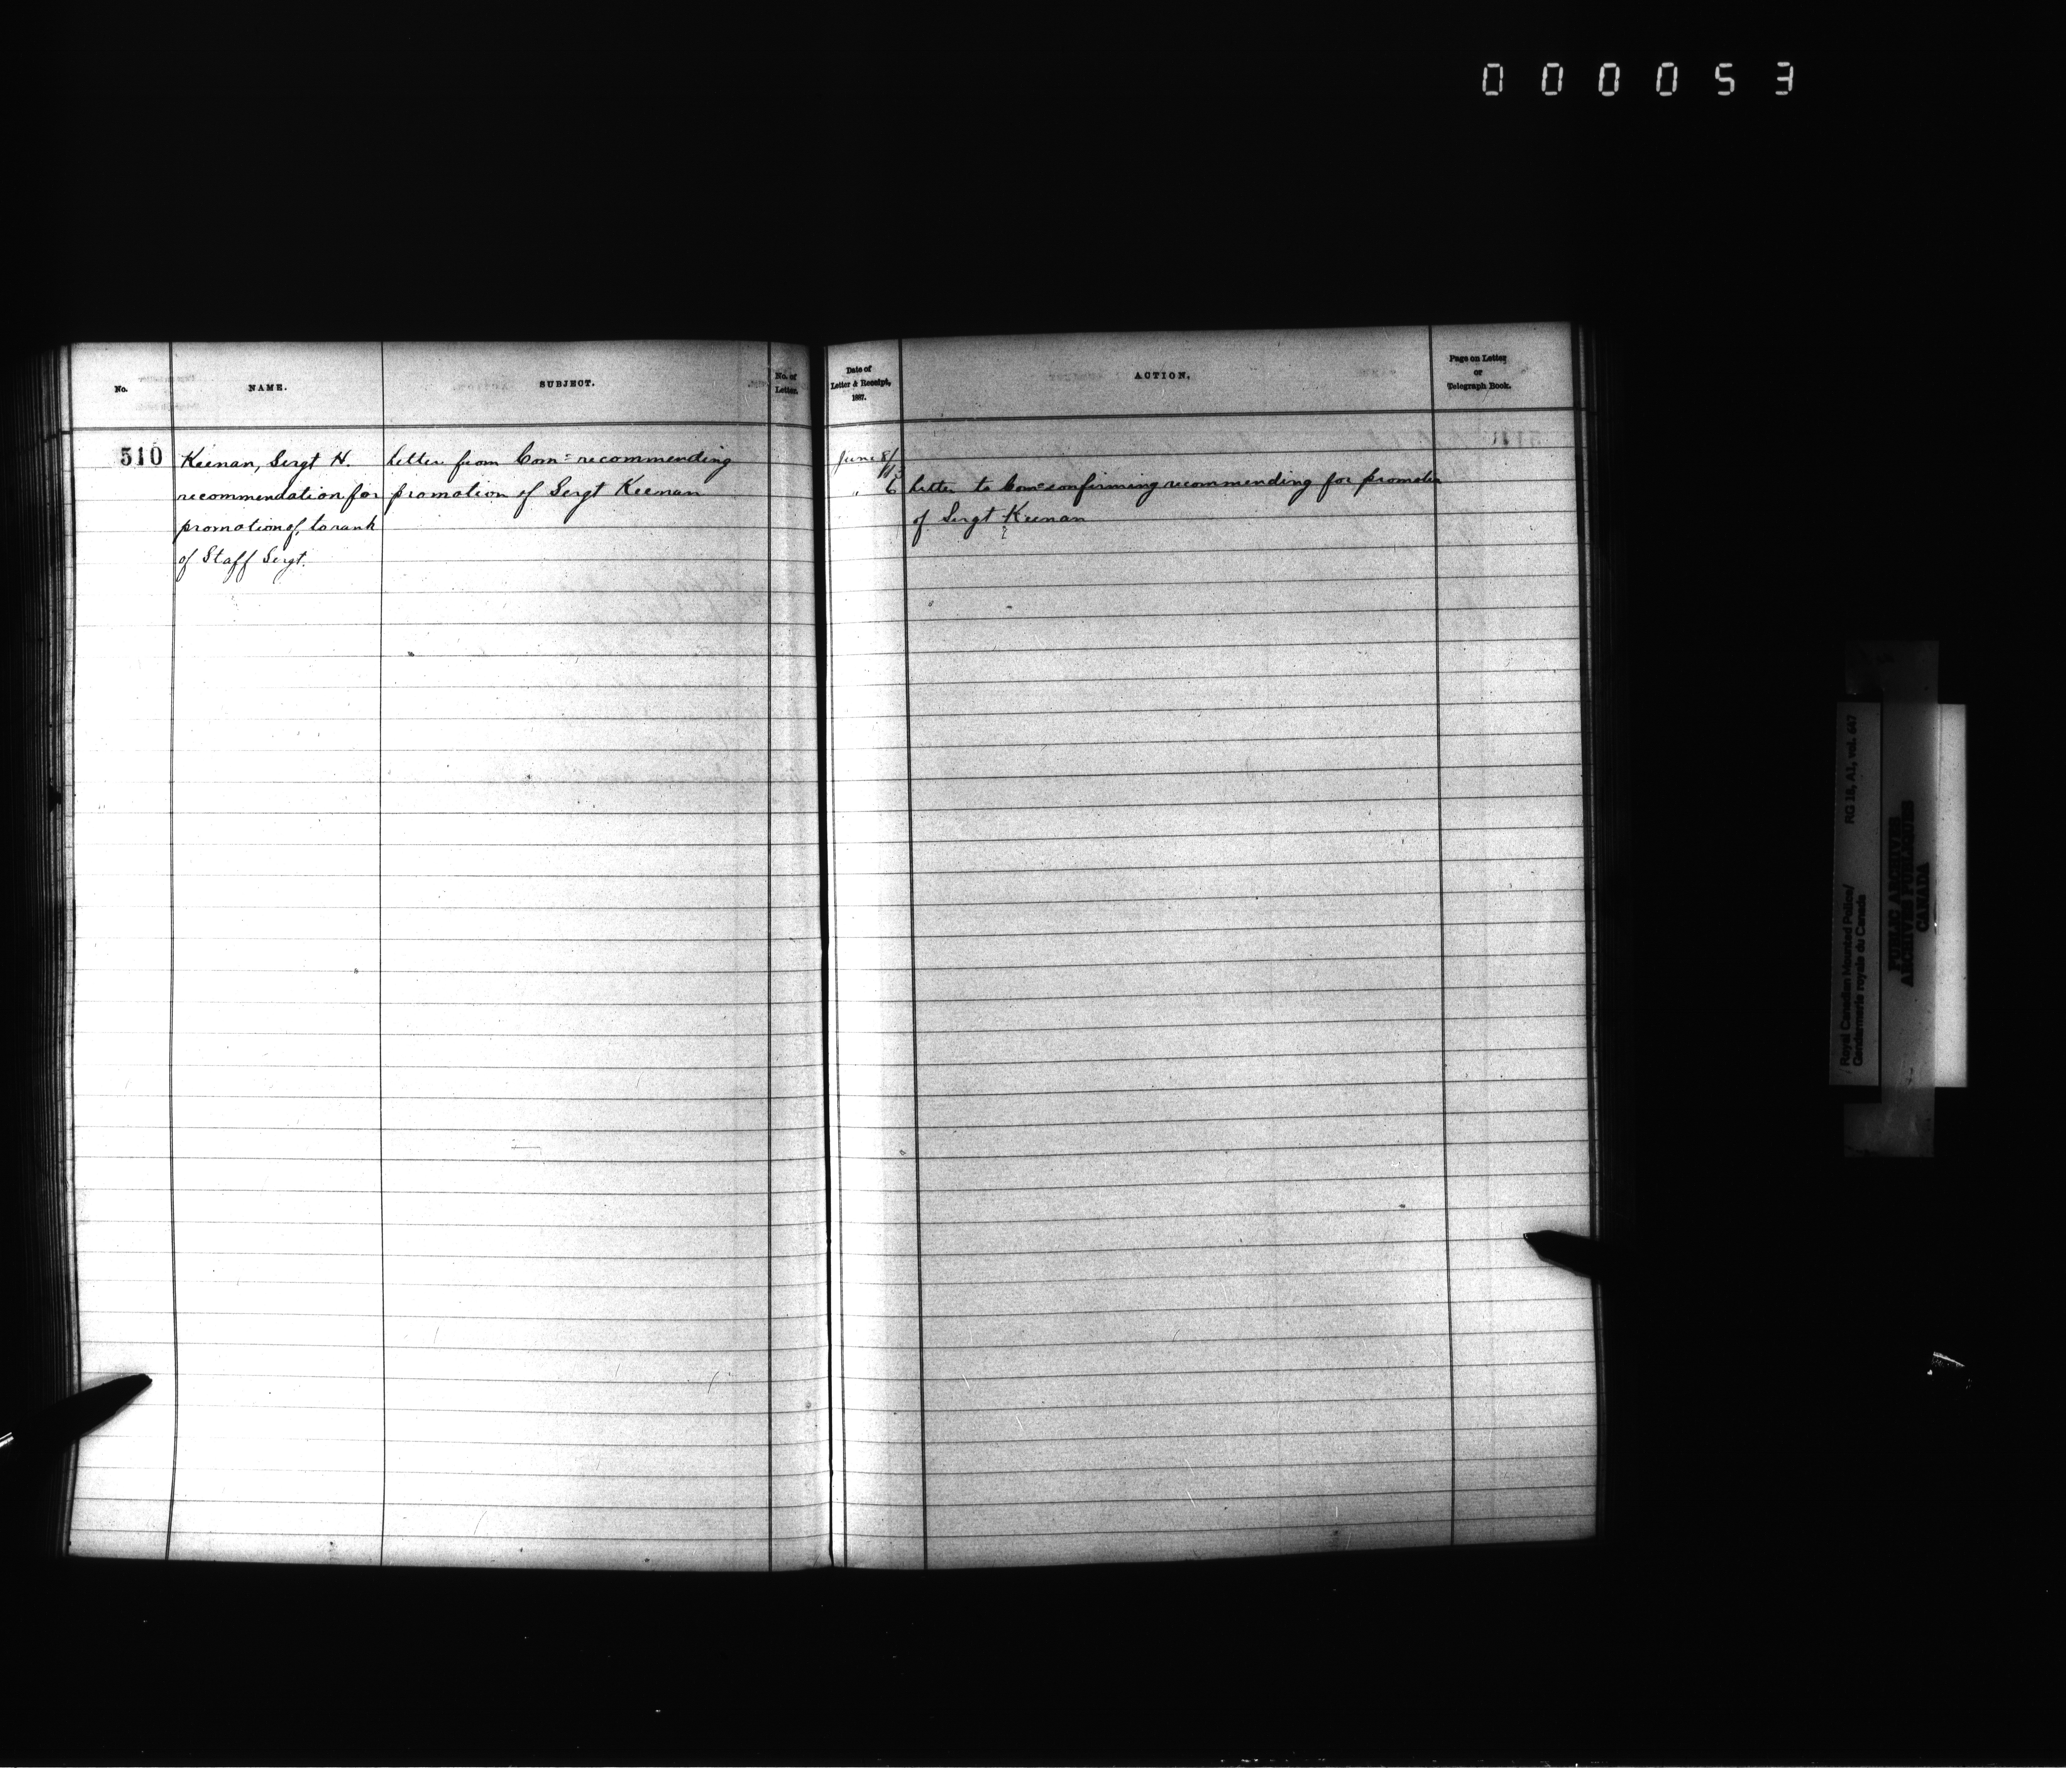 000053
No.
NAME.
SUBJECT.
No. of
Letter.
Date of
Letter & Receipt,
1887.
ACTION.
Page on Letter
or
Telegraph Book.
510
Keenan, Sergt H.
recommendation for
promotion of, to rank
of Staff Sergt.
Letter from Com= recommending
promotion of Sergt Keenan
June 8/
" 6
Letter to Com= confirming recommending for promotion
of Sergt Keenan
Royal Canadian Mounted Police/
Gendarmerie royale du Canada
RG 18, A1, vol. 647
PUBLIC ARCHIVES
ARCHIVES PUBLIQUES
CANADA